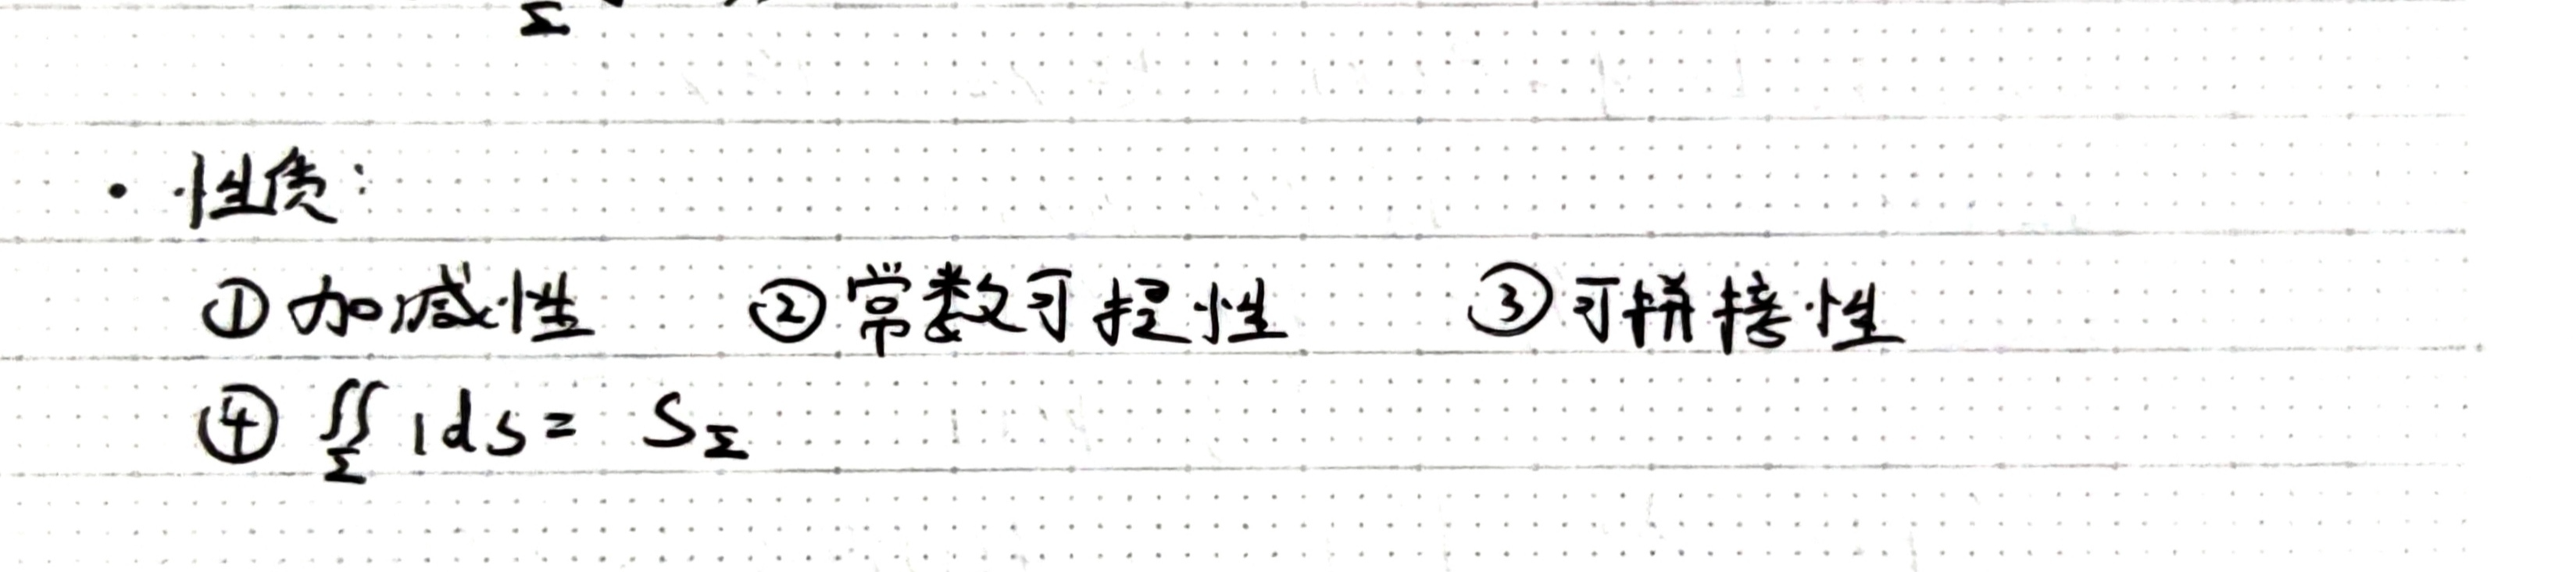 Σ
· 性质:
① 加减性 ② 常数可提性 ③ 可拼接性
④ ∬_Σ 1 ds = S_Σ